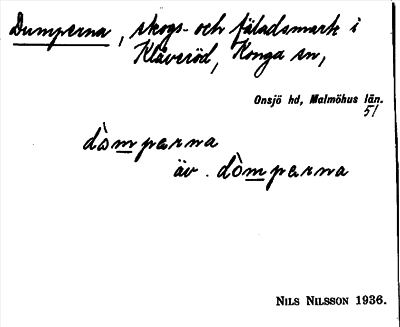 Dumperna, skogs- och fäladsmark i
Klåveröd, Konga sn,
Onsjö hd, Malmöhus län.
51
dòmpærna
äv. dòmpærna
NILS NILSSON 1936.